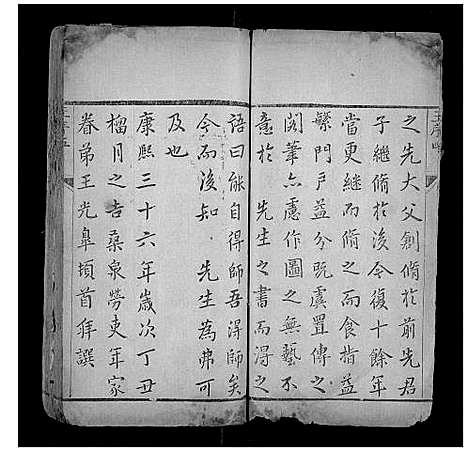 之先大父創脩於前先君
子繼脩於後今復十餘年
當更繼而脩之而食指益
繁門戶益分既虞置傳之
閣筆亦慮作圖之無藝不
意於 先生之書而得之
語曰能自得師吾得師矣
今而後知 先生為弗可
及也
康熙三十六年歲次丁丑
榴月之吉桑泉勞吏年家
眷弟王光阜頓首拜譔